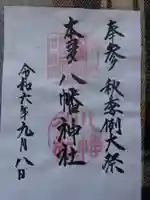 奉参 秋季例大祭
本多八幡神社
令和六年九月八日